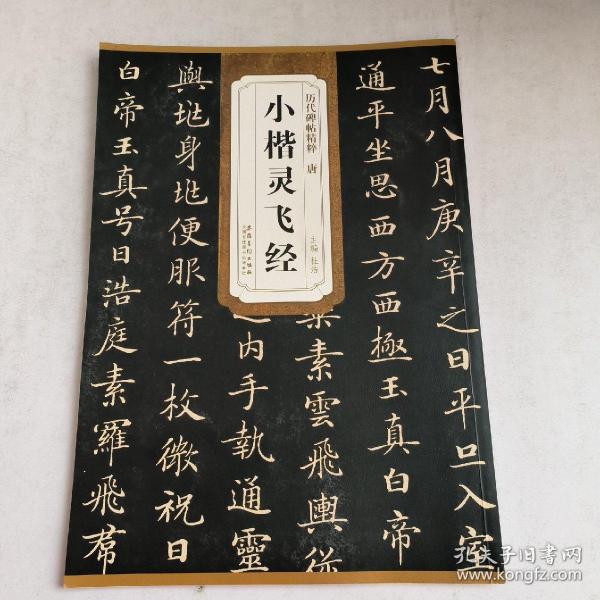 历代碑帖精粹 唐
小楷灵飞经
主编 杜浩
安徽美术出版社
七月八月庚辛之日平旦入室
通平坐思西方西極玉真白帝
素雲飛輿從
内手執通靈
與地身地便服符一枚微祝曰
白帝玉真号曰浩庭素羅飛帬
孔夫子旧书网
www.kongfz.com